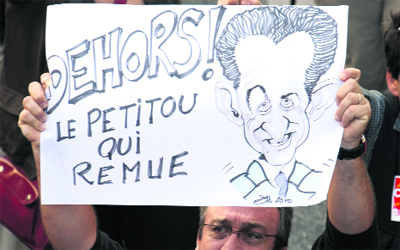 DEHORS!
LE PETITOU
QUI
REMUE
2010